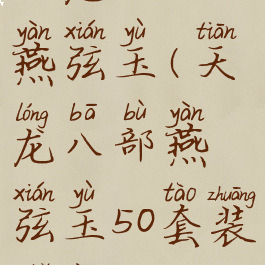 yàn xián yù tiān
燕弦玉(天
lóng bā bù yàn
龙八部燕
xián yù tào zhuāng
弦玉50套装